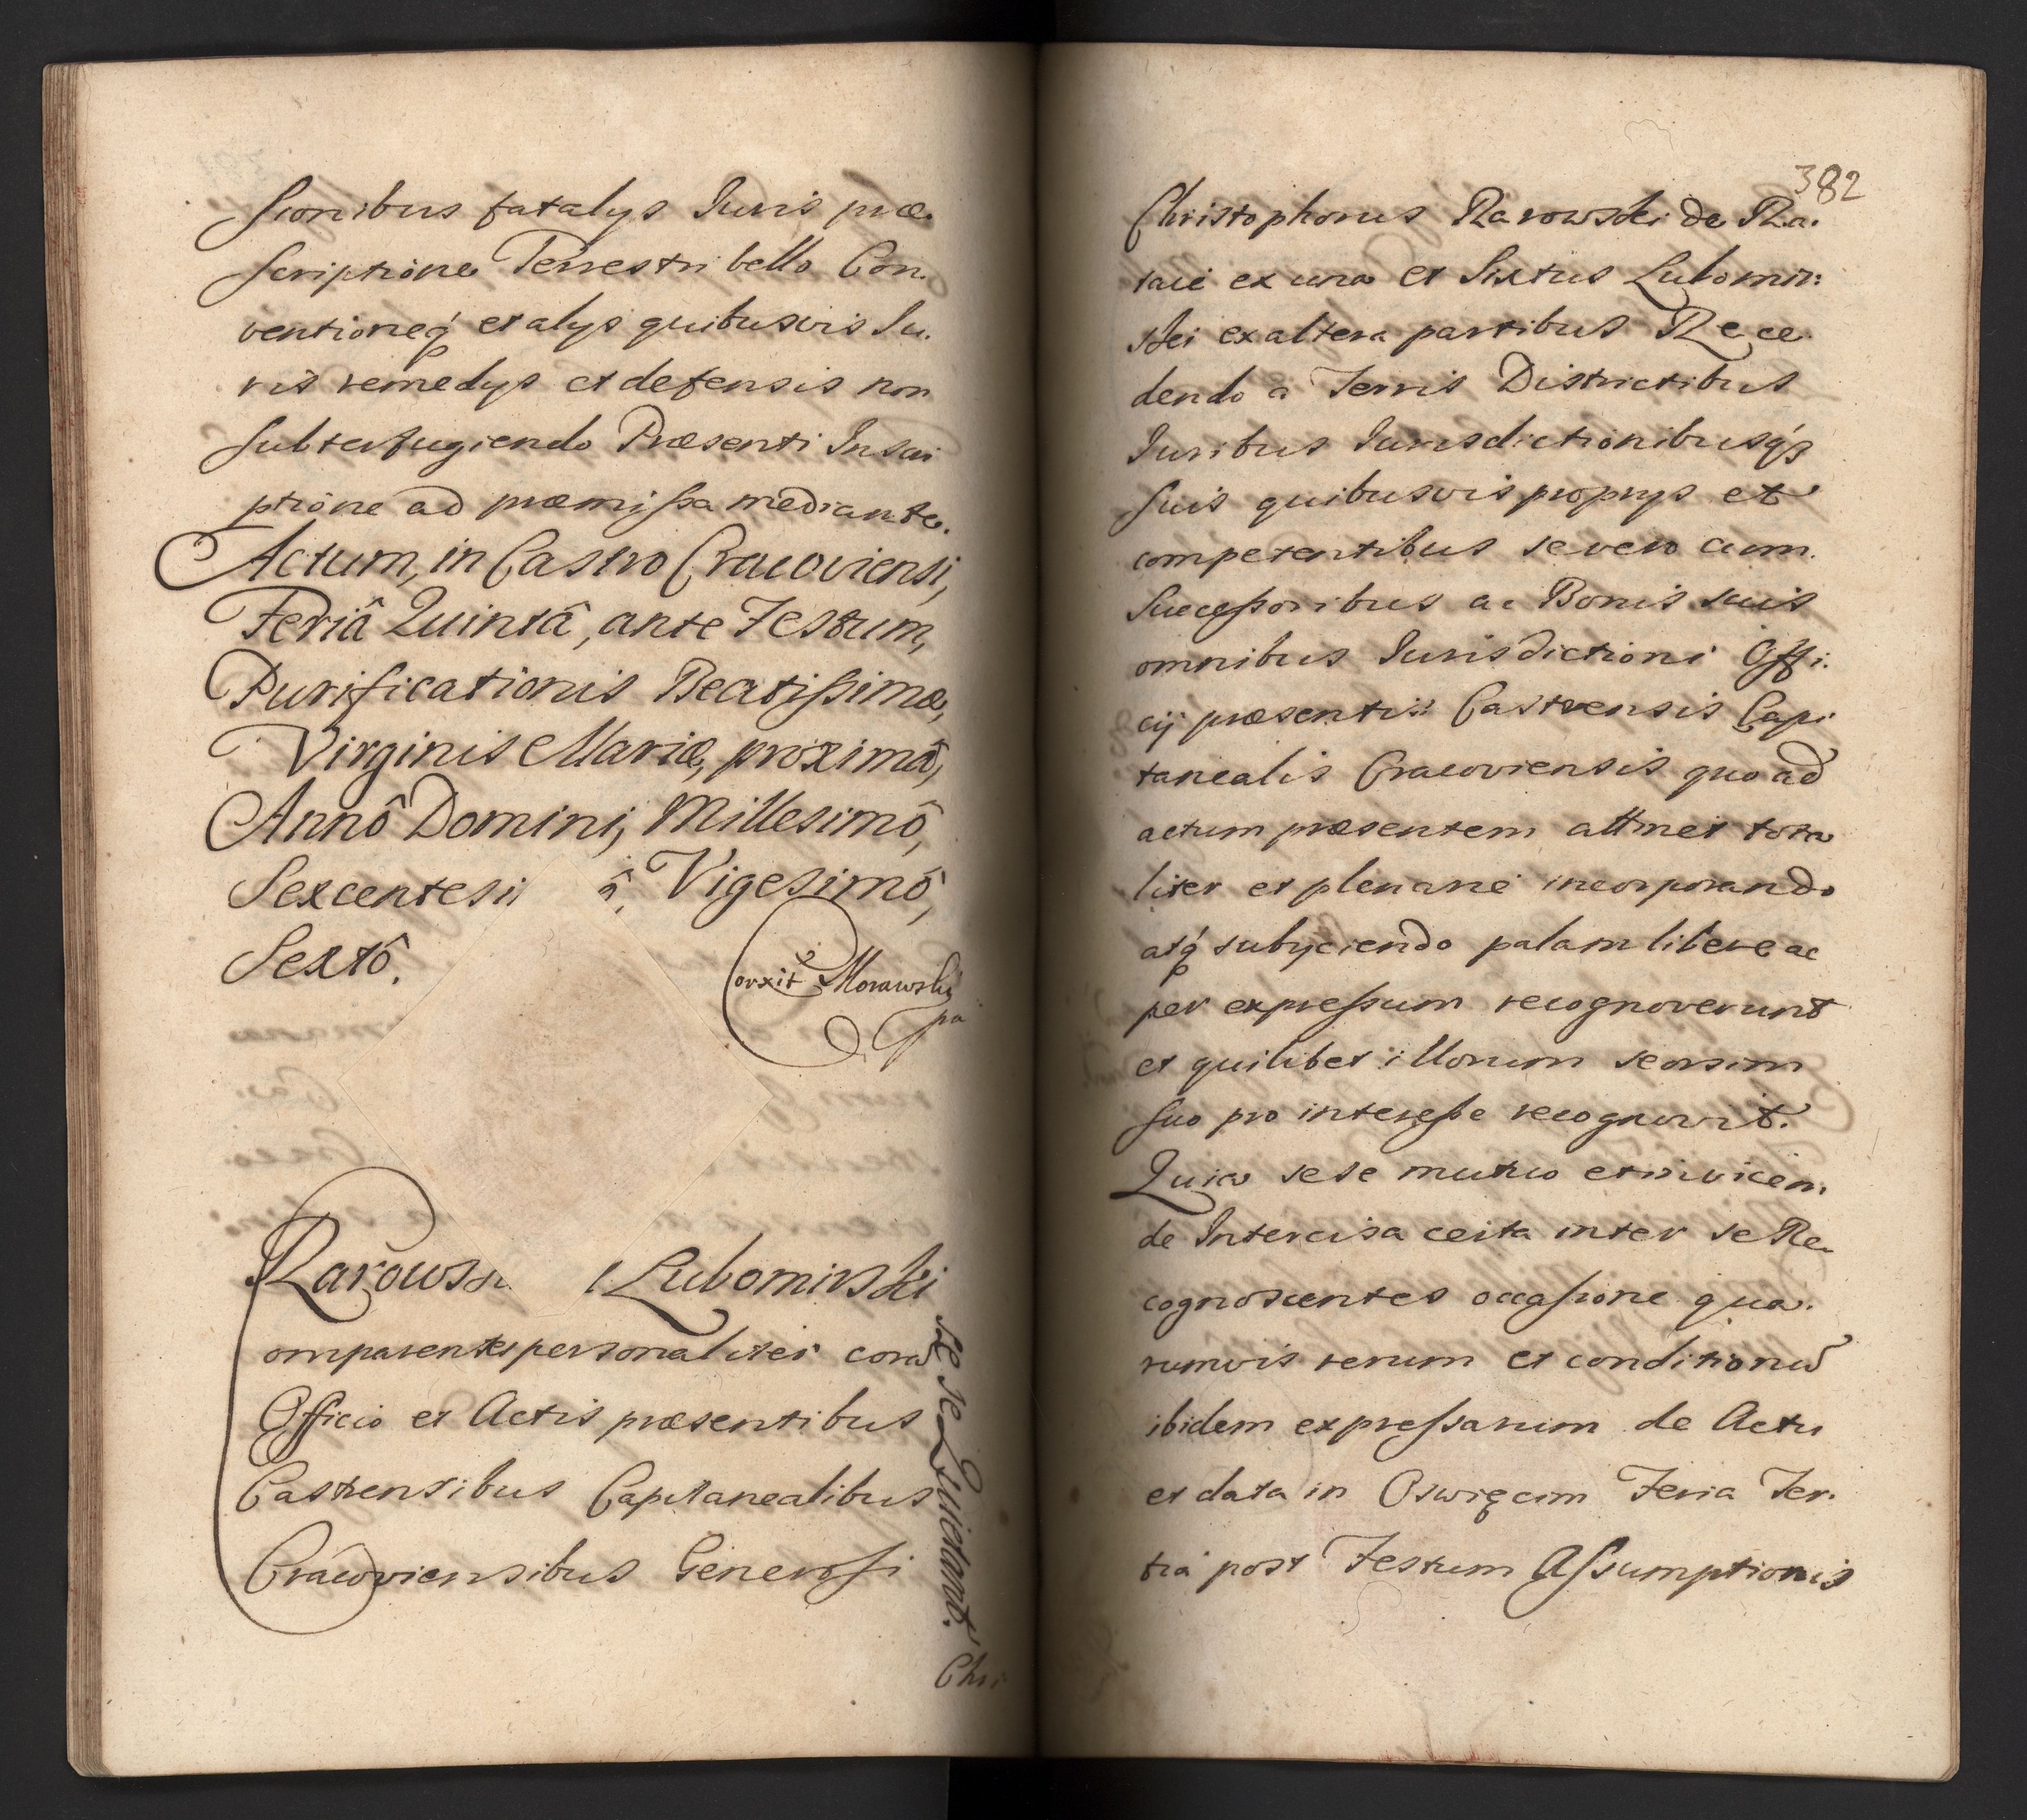 sionibus fatalys Iuris præ-
scriptione Terrestri bello Con-
ventioneq́ et alys quibusvis Iu-
ris remedys et defensis non
subterfugiendo Præsenti Inscri
ptione ad præmissa mediante.
Actum, in Castro Cracoviensi,
Feriâ Quintâ, ante Festum,
Purificationis Beatissimæ,
Virginis Mariæ, proximâ,
Annô Domini, Millesimô,
Sexcentesi ô, Vigesimô,
Sextô.
Corxit Morawski
pa
Rarowsk Lubomirski
Comparentes personaliter corã
Officio et Actis præsentibus
Castrensibus Capitanealibus
Cracoviensibus Generosi
se se Quietant.
Chri
382
Christophorus Rarowski de Ra-
et Sixtus Lubomir:
ski ex altera partibus Rece-
dendo a Terris Districtibus
Iuribus Iurisdictionibusq́
suis quibusvis proprys et
competentibus se vero cum
Successoribus ac Bonis suis
omnibus Iurisdictioni Offi-
cij præsentis Castrensis Capi-
tanealis Cracoviensis quo ad
actum præsentem attinet tota
liter et plenarie incorporando
atq́ subyciendo palam libere ac
per expressum recognoverunt
et quilibet illorum seorsim
suo pro interesse recognovit.
Quia sese mutuo et invicem
de Intercisa certa inter se Re-
cognoscentes occasione qua-
rumvis rerum et conditionũ
ibidem expressarum de Actu
et data in Oswięcim Feria Ter-
tia post Festum Assumptionis